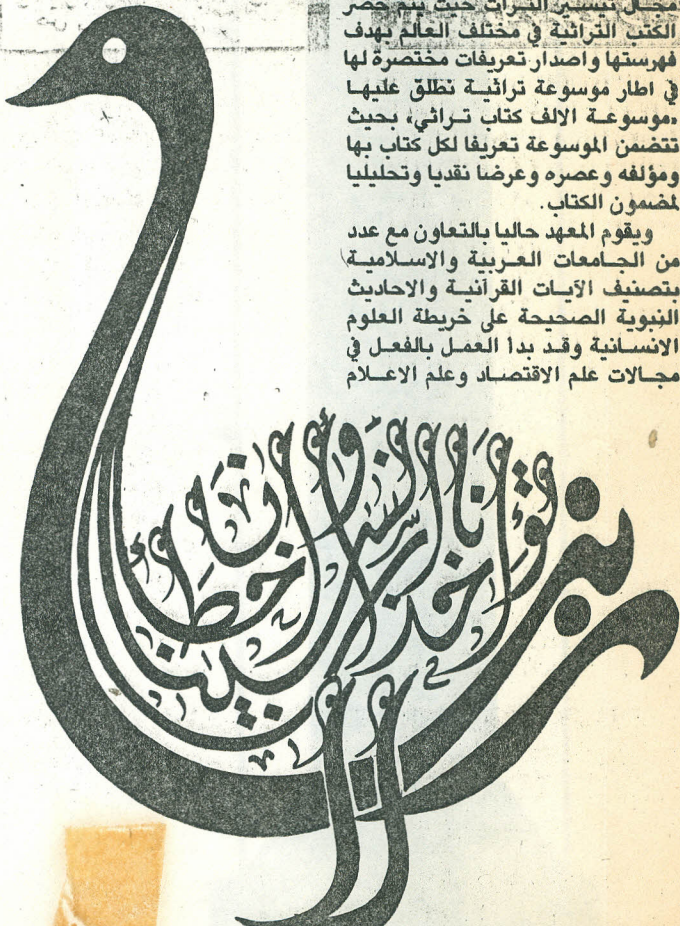 مجال تيسير التراث حيث يتم حصر
الكتب التراثية في مختلف العالم بهدف
فهرستها واصدار تعريفات مختصرة لها
في اطار موسوعة تراثية نطلق عليها
«موسوعة الالف كتاب تراثي» بحيث
تتضمن الموسوعة تعريفا لكل كتاب بها
ومؤلفه وعصره وعرضا نقديا وتحليليا
لمضمون الكتاب.
ويقوم المعهد حاليا بالتعاون مع عدد
من الجامعات العربية والاسلامية
بتصنيف الآيات القرآنية والاحاديث
النبوية الصحيحة على خريطة العلوم
الانسانية وقد بدأ العمل بالفعل في
مجالات علم الاقتصاد وعلم الاعلام
ربنا لا تؤاخذنا إن نسينا أو أخطأنا